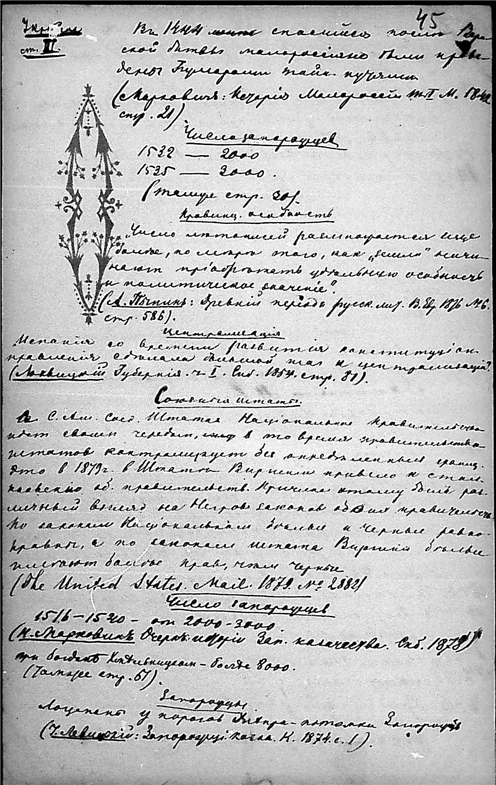 45
ст. III
Въ 1444 спасшiеся послѣ
ской битвы малороссiяне были
дены
(Марковичъ: Исторiя Малороссiи т. II М. 1842
стр. 21)
Число запорожцевъ
1532 — 2000
1535 — 3000.
(Тамже стр. 30).
Провинц. особность
„Число лѣтописей размножается еще
болѣе, по мѣрѣ того, какъ „земли" начи-
наютъ прiобрѣтать удѣльную особность
и политическое значенiе".
(А. Пыпинъ: Древнiй перiодъ русск. лит. В. Евр. 1876 № 6.
стр. 586).
Централизацiя
Испанiя со времени развитiя конституцiон.
правленiя сдѣлала большой шагъ къ централизацiи
Губернiя. ч I. Спб. 1854. стр. 81).
Соединен. штаты.
Въ С. Ам. Соед. Штатахъ Нацiональное правительство
идетъ своимъ чередомъ, въ то время правительства
штатовъ безъ опредѣленныхъ границъ.
Это в 1879 г. в Штатѣ Виргинiи привело к стол-
кновенiю об. правительствъ. Причина этому былъ раз-
личный взглядъ на Негровъ законовъ обоихъ правительствъ
По законамъ Нацiональнымъ бѣлые и черные равно-
правны, а по законамъ штата Виргинiи бѣлые
имѣютъ больше правъ, чѣмъ черные
(The United States. Mail. 1879. No 2882)
Число запорожцевъ
1516–1520 – от 2000–3000
(Н. Марковинъ Очеркъ исторiи Зап. казачества. Спб. 1878)
при Богданѣ Хмѣльницкомъ – болѣе 8000.
(Тамже стр. 67).
Запорожцы
Лоцманы у пороговъ Днѣпра – потомки Запорожцевъ
(Левицкiй: Запорожцi К. 1874. с. 1).